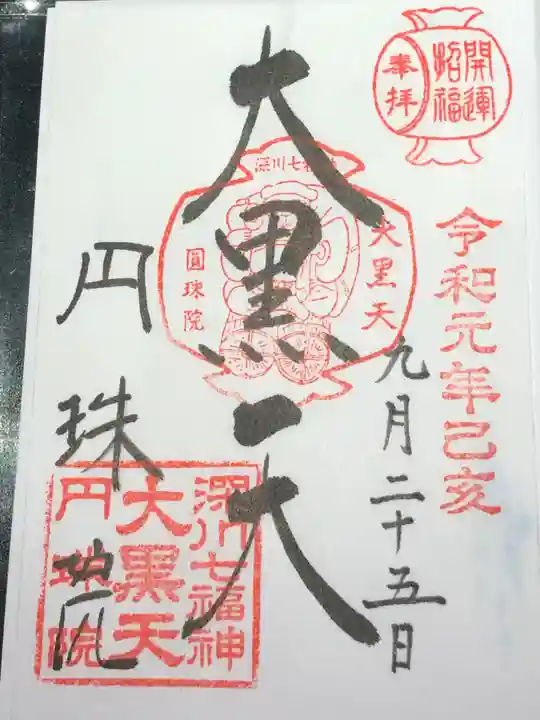 開運
招福
奉拝
令和元年己亥
九月二十五日
深川七福神
大黒天
圓珠院
大黒天
円珠院
深川七福神
大黒天
円珠院